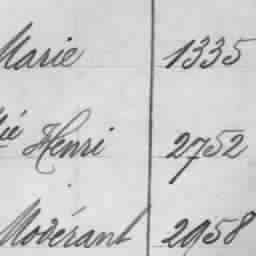 Marie 1335
ié Henri 2752
Modérant 2958